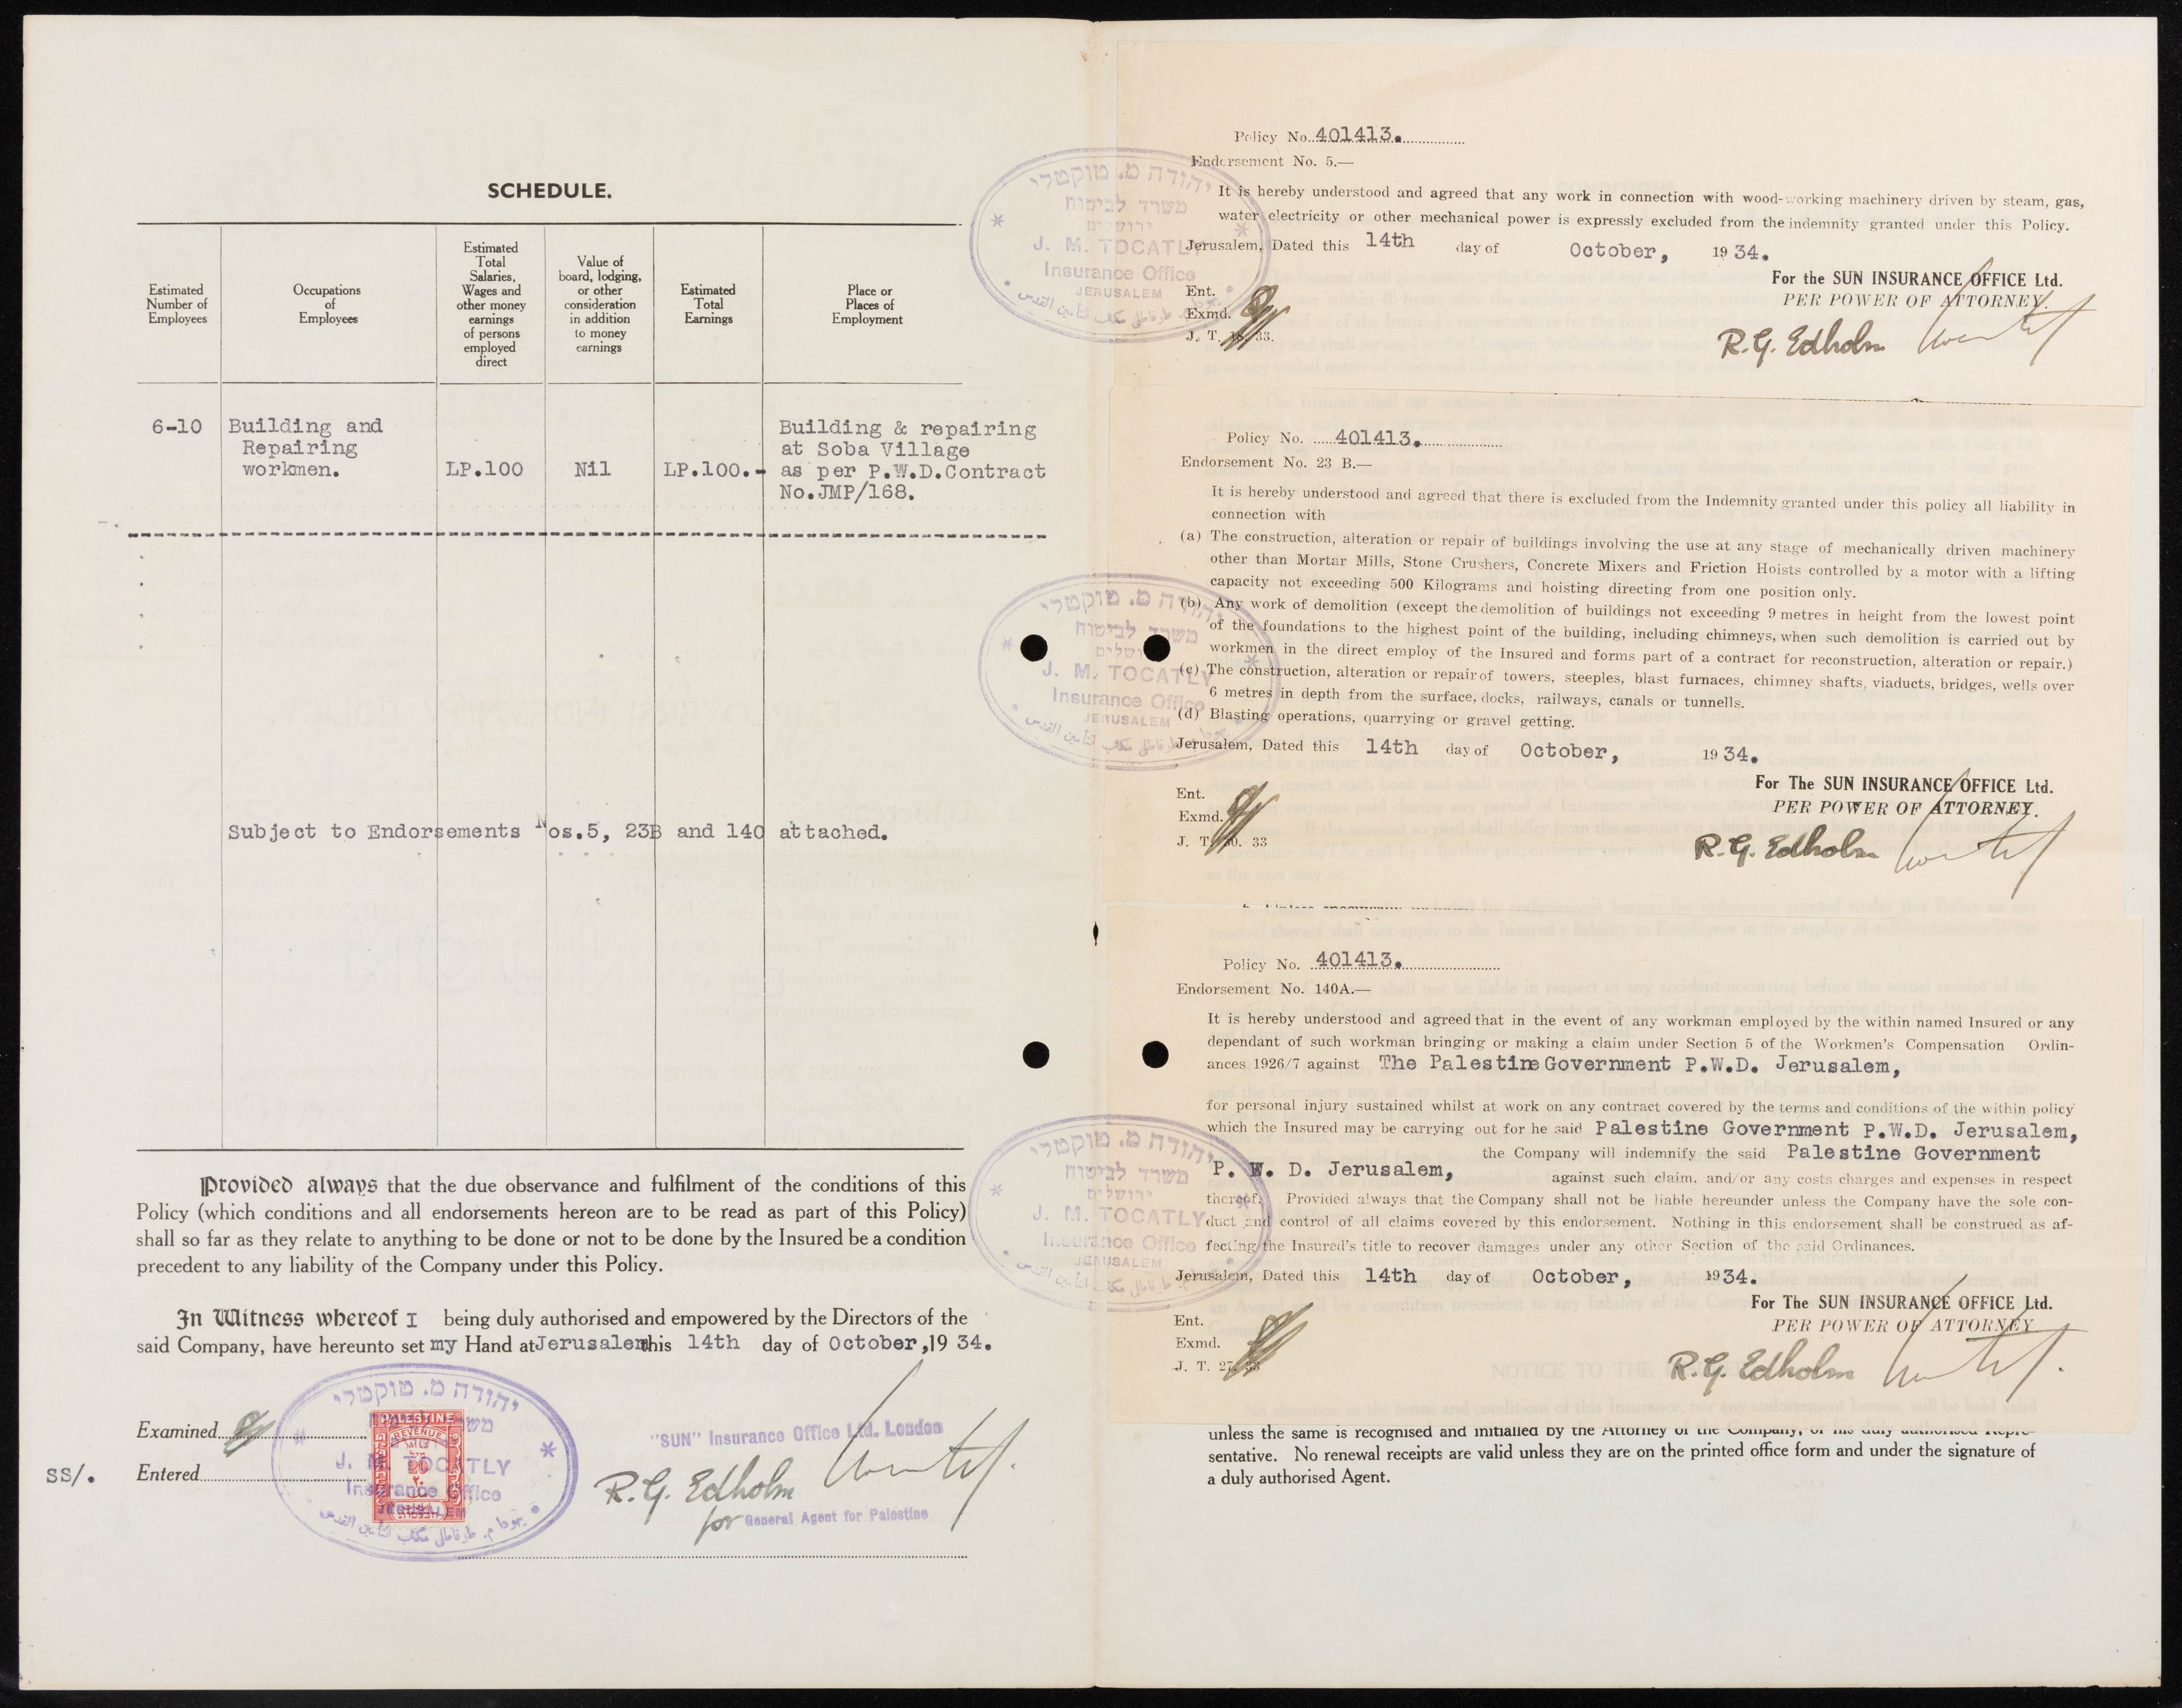 SCHEDULE.
Estimated
Number of
Employees
Occupations
of
Employees
Estimated
Total
Salaries,
Wages and
other money
earnings
of persons
employed
direct
Value of
board, lodging,
or other
consideration
in addition
to money
earnings
Estimated
Total
Earnings
Place or
Places of
Employment
6-10
Building and
Repairing
workmen.
LP.100
Nil
LP.100.-
Building & repairing
at Soba Village
as per P.W.D.Contract
No.JMP/168.
Subject to Endorsements Nos.5, 23B and 140 attached.
Provided always that the due observance and fulfilment of the conditions of this
Policy (which conditions and all endorsements hereon are to be read as part of this Policy)
shall so far as they relate to anything to be done or not to be done by the Insured be a condition
precedent to any liability of the Company under this Policy.
In Witness whereof I being duly authorised and empowered by the Directors of the
said Company, have hereunto set my Hand at Jerusalem this 14th day of October, 19 34.
Examined
SS/. Entered
יהודה מ. טוקטלי
J. M. TOCATLY
Insurance Office
JERUSALEM
PALESTINE
REVENUE
MILS
"SUN" Insurance Office Ltd. London
R.G. Edholm
for General Agent for Palestine
Policy No. 401413.
Endorsement No. 5.—
It is hereby understood and agreed that any work in connection with wood-working machinery driven by steam, gas,
water electricity or other mechanical power is expressly excluded from the indemnity granted under this Policy.
Jerusalem, Dated this 14th day of October, 19 34.
For the SUN INSURANCE OFFICE Ltd.
PER POWER OF ATTORNEY.
Ent.
Exmd.
J. T. 33.
R.G. Edholm
יהודה מ. טוקטלי
משרד לביטוח
ירושלים
J. M. TOCATLY
Insurance Office
JERUSALEM
Policy No. 401413.
Endorsement No. 23 B.—
It is hereby understood and agreed that there is excluded from the Indemnity granted under this policy all liability in
connection with
(a) The construction, alteration or repair of buildings involving the use at any stage of mechanically driven machinery
other than Mortar Mills, Stone Crushers, Concrete Mixers and Friction Hoists controlled by a motor with a lifting
capacity not exceeding 500 Kilograms and hoisting directing from one position only.
(b) Any work of demolition (except the demolition of buildings not exceeding 9 metres in height from the lowest point
of the foundations to the highest point of the building, including chimneys, when such demolition is carried out by
workmen in the direct employ of the Insured and forms part of a contract for reconstruction, alteration or repair.)
(c) The construction, alteration or repair of towers, steeples, blast furnaces, chimney shafts, viaducts, bridges, wells over
6 metres in depth from the surface, docks, railways, canals or tunnells.
(d) Blasting operations, quarrying or gravel getting.
Jerusalem, Dated this 14th day of October, 19 34.
For The SUN INSURANCE OFFICE Ltd.
PER POWER OF ATTORNEY.
Ent.
Exmd.
J. T. 33
R.G. Edholm
יהודה מ. טוקטלי
משרד לביטוח
ירושלים
J. M. TOCATLY
Insurance Office
JERUSALEM
Policy No. 401413.
Endorsement No. 140A.—
It is hereby understood and agreed that in the event of any workman employed by the within named Insured or any
dependant of such workman bringing or making a claim under Section 5 of the Workmen's Compensation Ordin-
ances 1926/7 against The Palestine Government P.W.D. Jerusalem,
for personal injury sustained whilst at work on any contract covered by the terms and conditions of the within policy
which the Insured may be carrying out for he said Palestine Government P.W.D. Jerusalem,
the Company will indemnify the said Palestine Government
P. W. D. Jerusalem, against such claim, and/or any costs charges and expenses in respect
thereof. Provided always that the Company shall not be liable hereunder unless the Company have the sole con-
duct and control of all claims covered by this endorsement. Nothing in this endorsement shall be construed as af-
fecting the Insured's title to recover damages under any other Section of the said Ordinances.
Jerusalem, Dated this 14th day of October, 1934.
For The SUN INSURANCE OFFICE Ltd.
PER POWER OF ATTORNEY
Ent.
Exmd.
J. T. 27.
R.G. Edholm
יהודה מ. טוקטלי
משרד לביטוח
ירושלים
J. M. TOCATLY
Insurance Office
JERUSALEM
unless the same is recognised and initialled by the Attorney of the Company, or his duly authorised Repre-
sentative. No renewal receipts are valid unless they are on the printed office form and under the signature of
a duly authorised Agent.